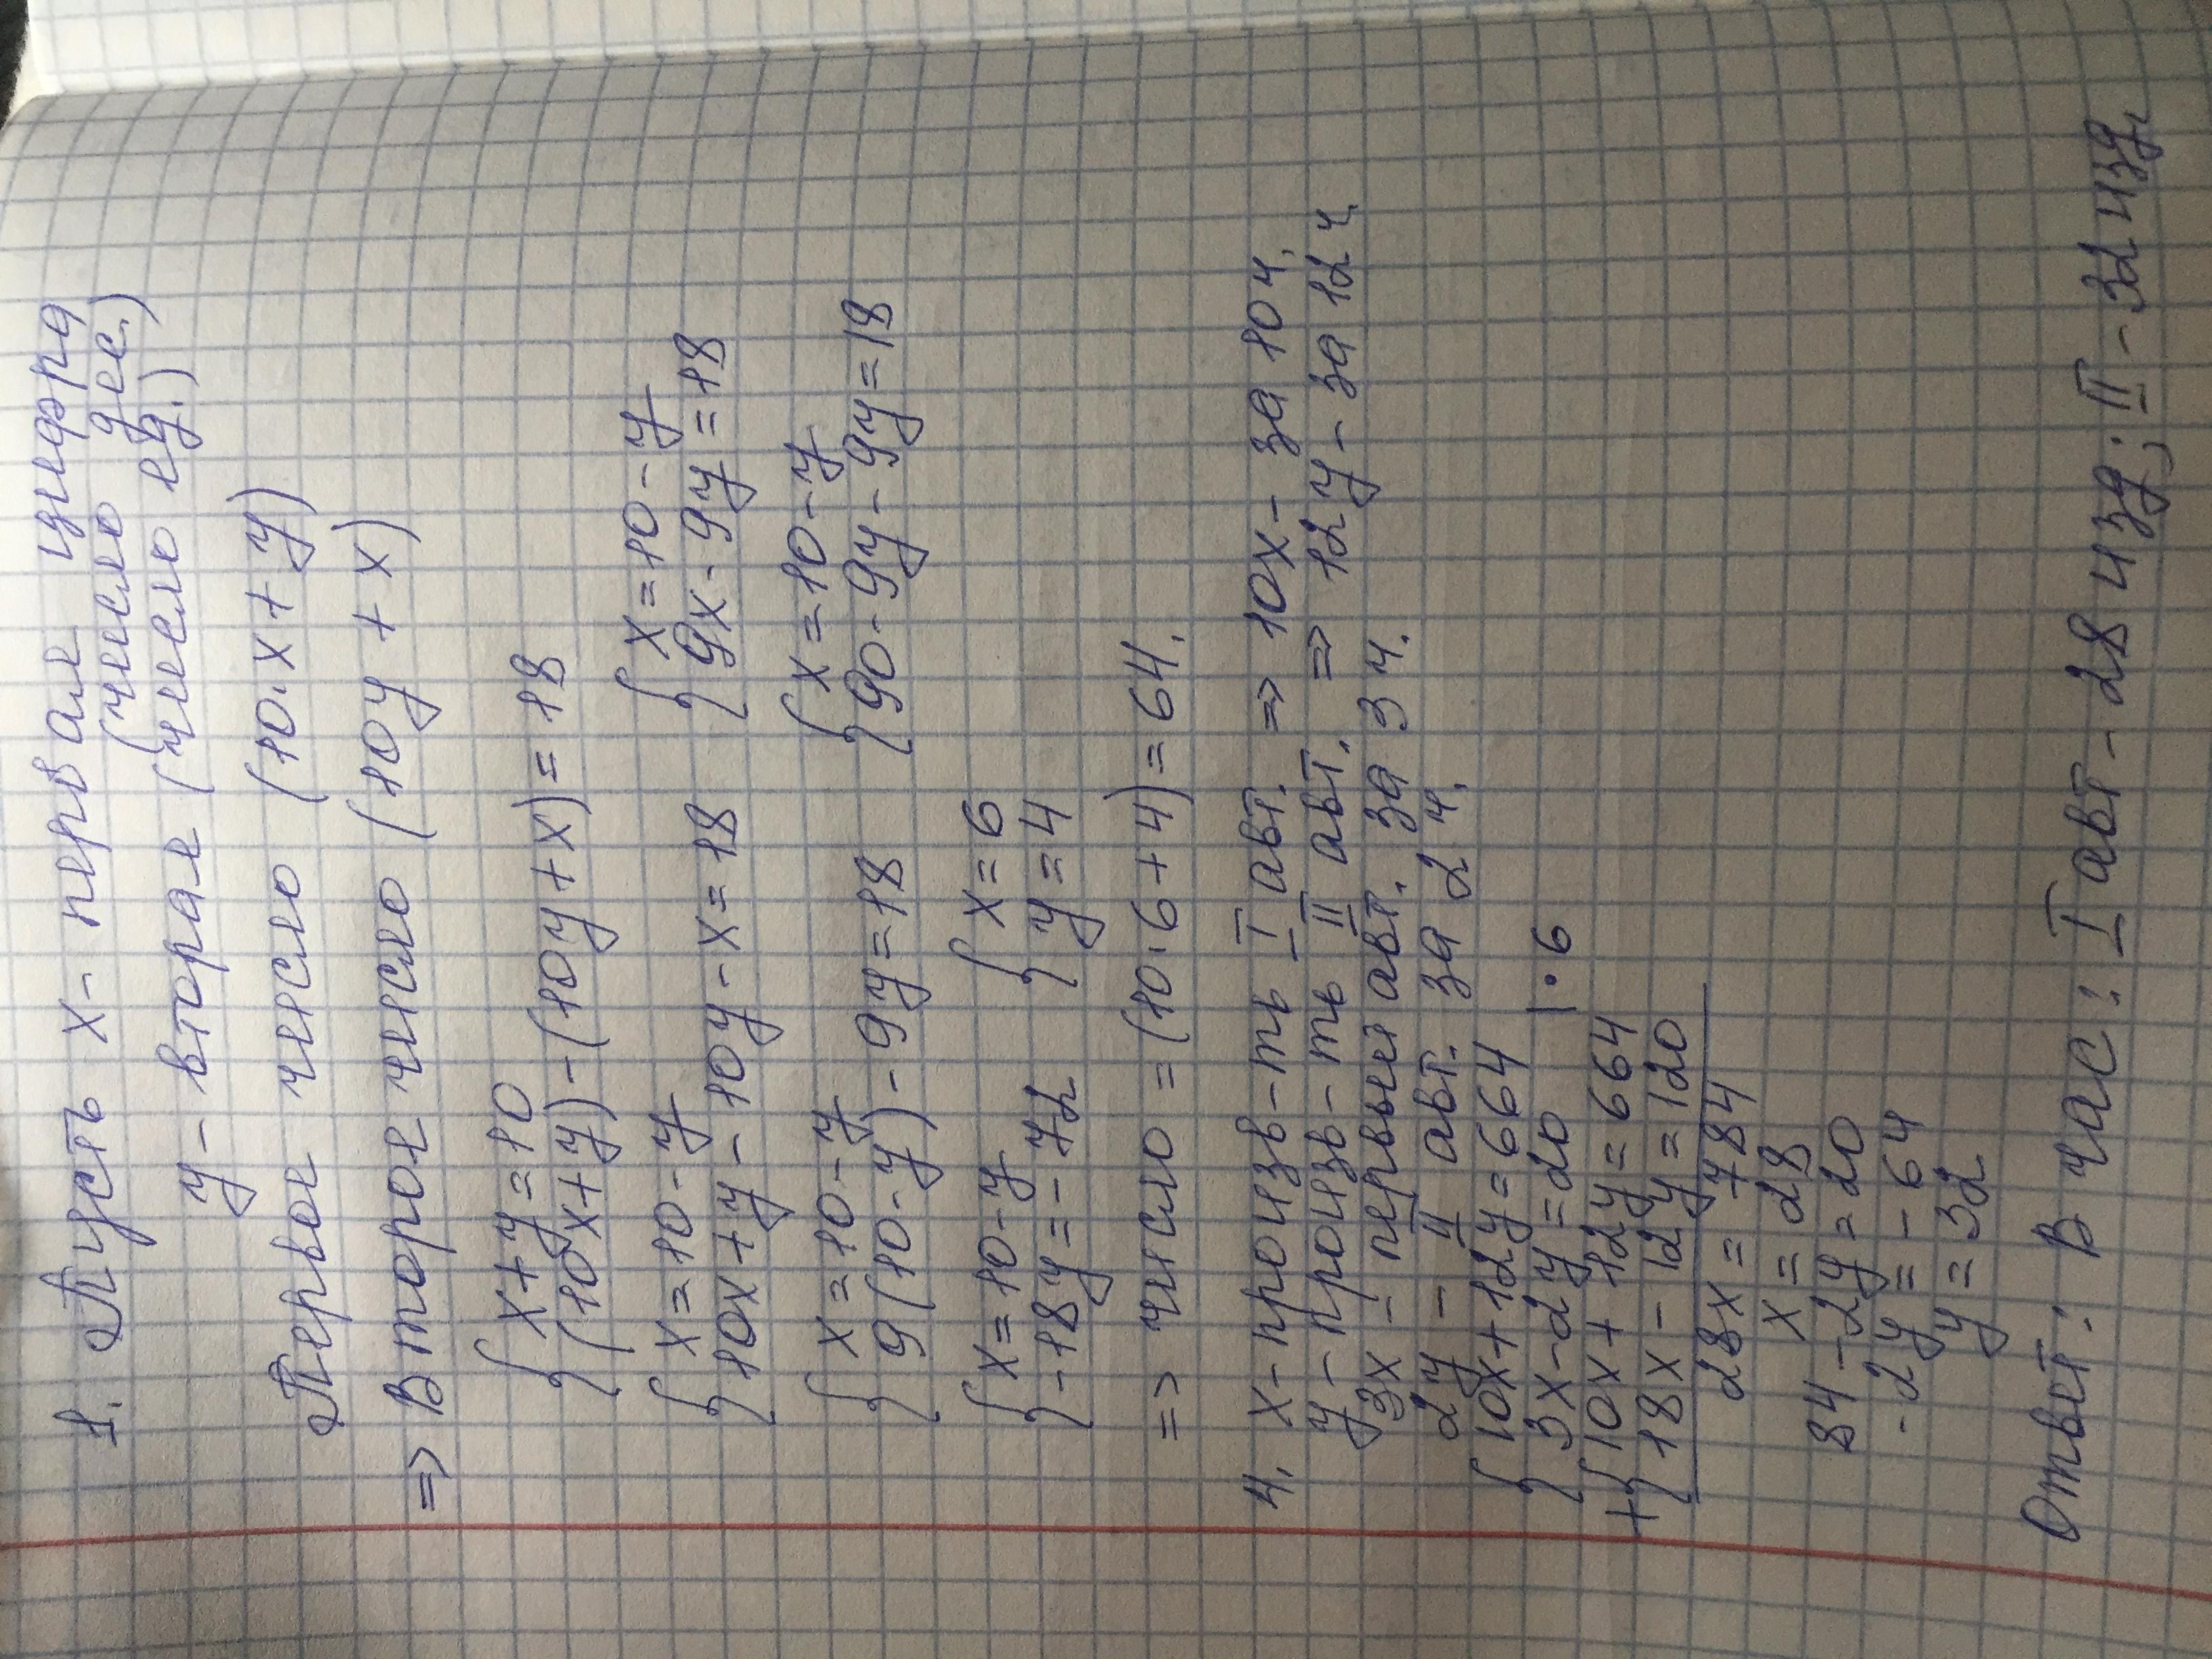 1. Пусть x - первая цифра
(число дес.)
y - вторая (число ед.)
Первое число (10·x + y)
=> Второе число (10y + x)
{ x + y = 10
(10x + y) - (10y + x) = 18
{ x = 10 - y
10x + y - 10y - x = 18
{ x = 10 - y
9x - 9y = 18
{ x = 10 - y
9(10 - y) - 9y = 18
{ x = 10 - y
90 - 9y - 9y = 18
{ x = 10 - y
-18y = -72
{ x = 6
y = 4
=> число = (10·6 + 4) = 64.
4. x - произв-ть I авт. => 10x - за 10 ч.
y - произв-ть II авт. => 12y - за 12 ч.
3x - первый авт. за 3 ч.
2y - II авт. за 2 ч.
{ 10x + 12y = 664
3x - 2y = 20 | · 6
+ { 10x + 12y = 664
18x - 12y = 120
28x = 784
x = 28
84 - 2y = 20
-2y = -64
y = 32
Ответ: В час: I авт - 28 изд; II - 32 изд.